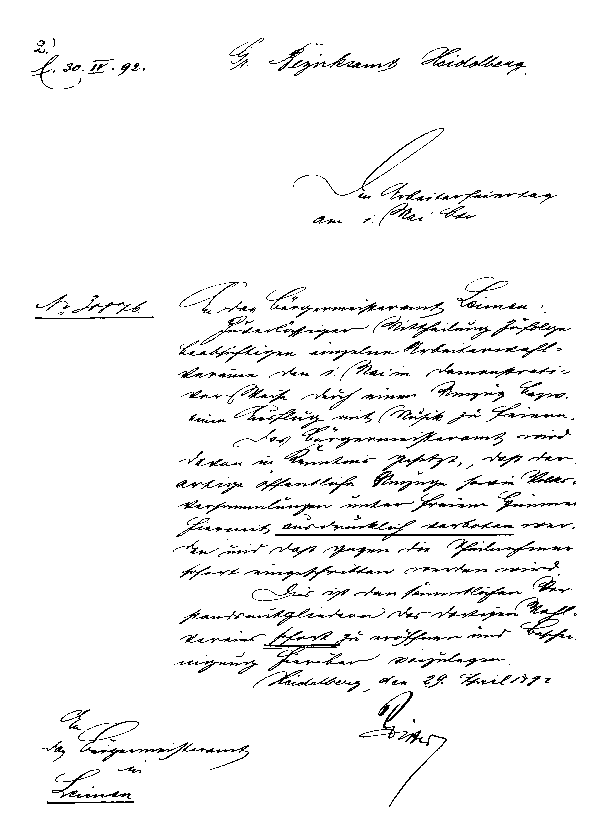 2.)
30. IV. 92.
Gr. Bezirksamt Heidelberg.
Den Arbeiterfeiertag
am 1. Mai btr
No 30876
An das Bürgermeisteramt Leimen.
Zuverlässiger Mittheilung zufolge
beabsichtigen einzelne Arbeiterwahl-
vereine den 1. Mai in demonstrati-
ver Weise durch einen Umzug bezw.
einen Ausflug mit Musik zu feiern.
Das Bürgermeisteramt wird
davon in Kenntnis gesetzt, daß der
artige öffentliche Umzüge sowie Volks-
versammlungen unter freiem Himmel
hiermit ausdrücklich verboten wer-
den und daß gegen die Theilnehmer
sofort eingeschritten werden wird.
Dies ist den sämmtlichen Vor
standsmitgliedern des dortigen Wahl-
vereins sofort zu eröffnen und Beschei
nigung hierüber vorzulegen.
Heidelberg, den 29. April 1892
An
das Bürgermeisteramt
in
Leimen